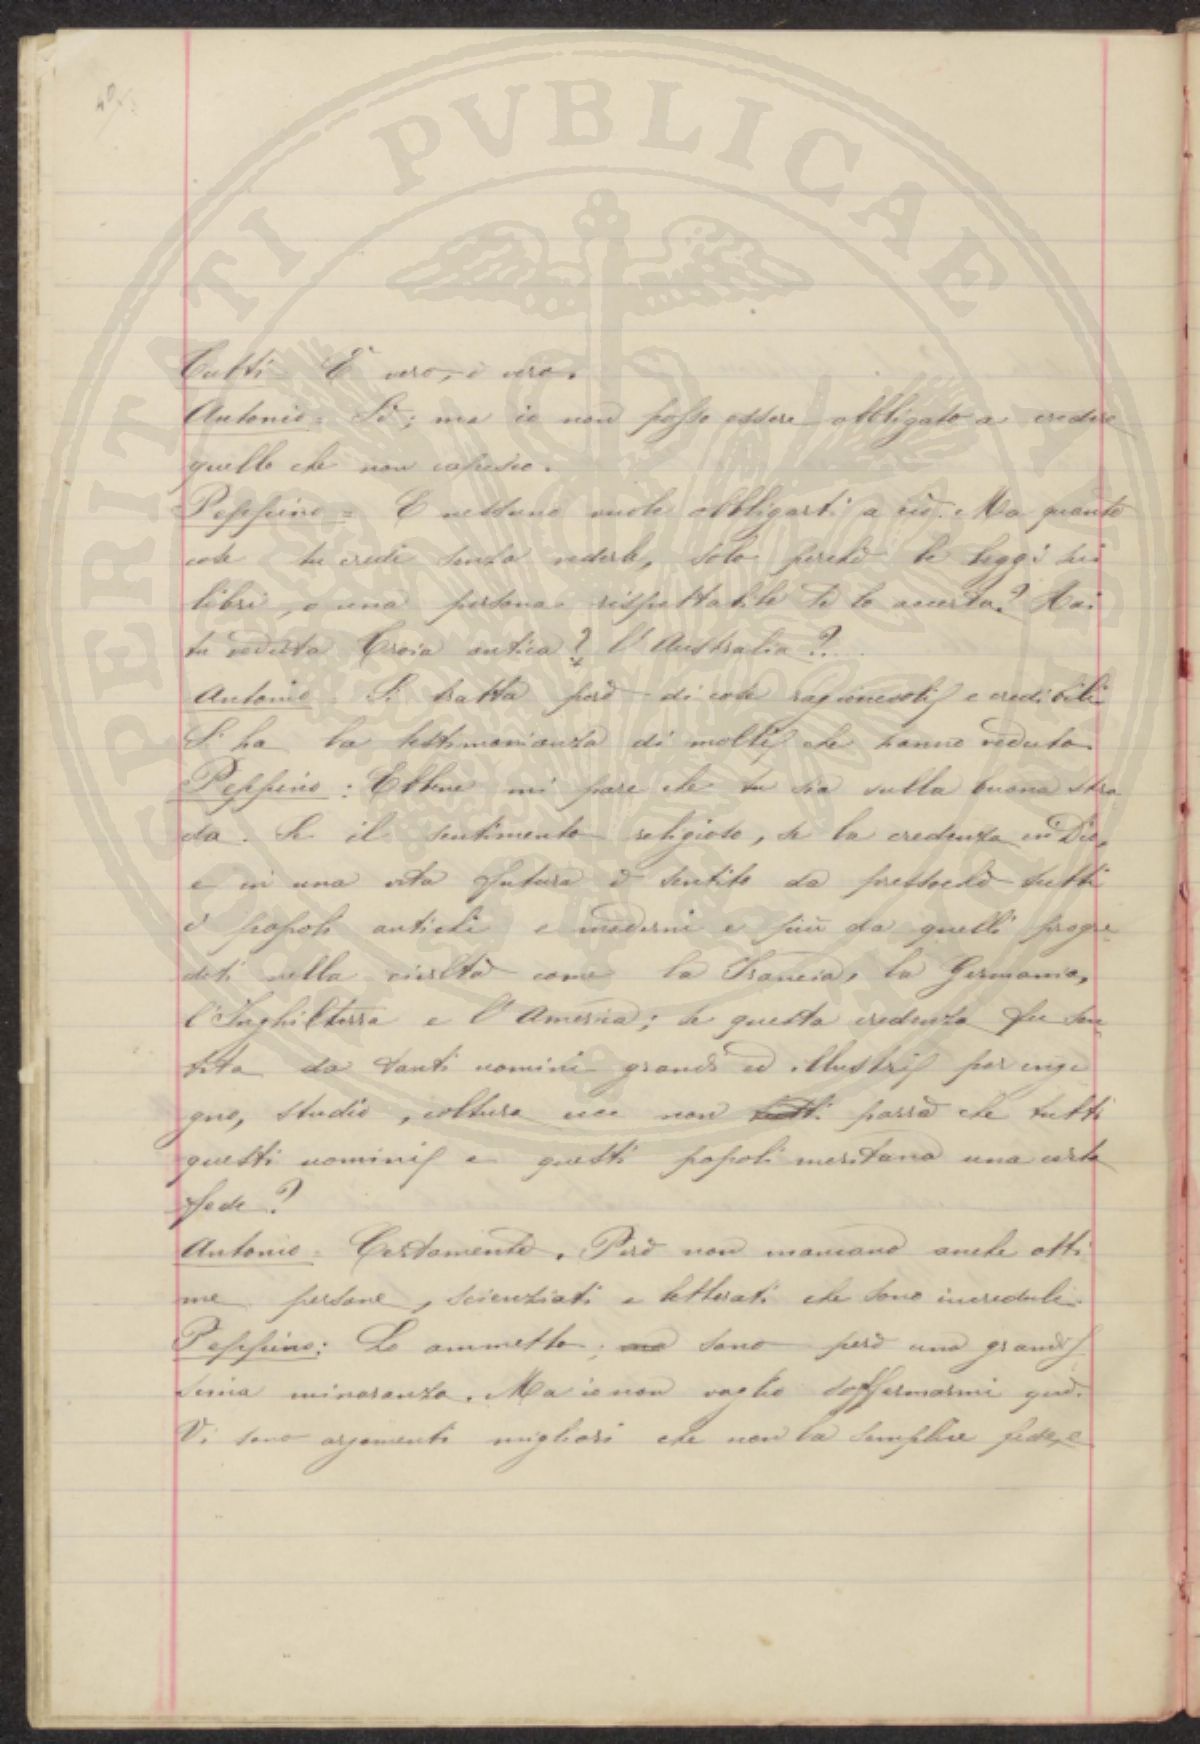 Tutti = È vero, è vero.
Antonio = Sì; ma io non posso essere obbligato a credere
quello che non capisco.
Peppino = E nessuno vuole obbligarti a ciò. Ma quante
cose tu credi senza vederle, solo perchè le leggi sui
libri, o una persona rispettabile te lo accerta? Hai
tu veduta Troia antica? l'Australia?..
Antonio = Si tratta però di cose ragionevoli e credibili.
Si ha la testimonianza di molti che hanno veduto.
Peppino: Ebbene mi pare che tu sia sulla buona stra
da. Se il sentimento religioso, se la credenza in Dio,
e in una vita futura è sentito da pressochè tutti
i popoli antichi e moderni e più da quelli progre
diti nella civiltà come la Francia, la Germania,
l'Inghilterra e l'America; se questa credenza fu sen
tita da tanti uomini grandi ed illustri per inge
gno, studio, coltura ecc non tutti parrà che tutti
questi uomini e questi popoli meritano una certa
fede?
Antonio = Certamente. Però non mancano anche otti
me persone, scienziati e letterati che sono increduli.
Peppino: Lo ammetto; ma sono però una grandis
sima minoranza. Ma io non voglio soffermarmi quì.
Vi sono argomenti migliori che non la semplice fede, e
PROSPERITATI PVBLICAE